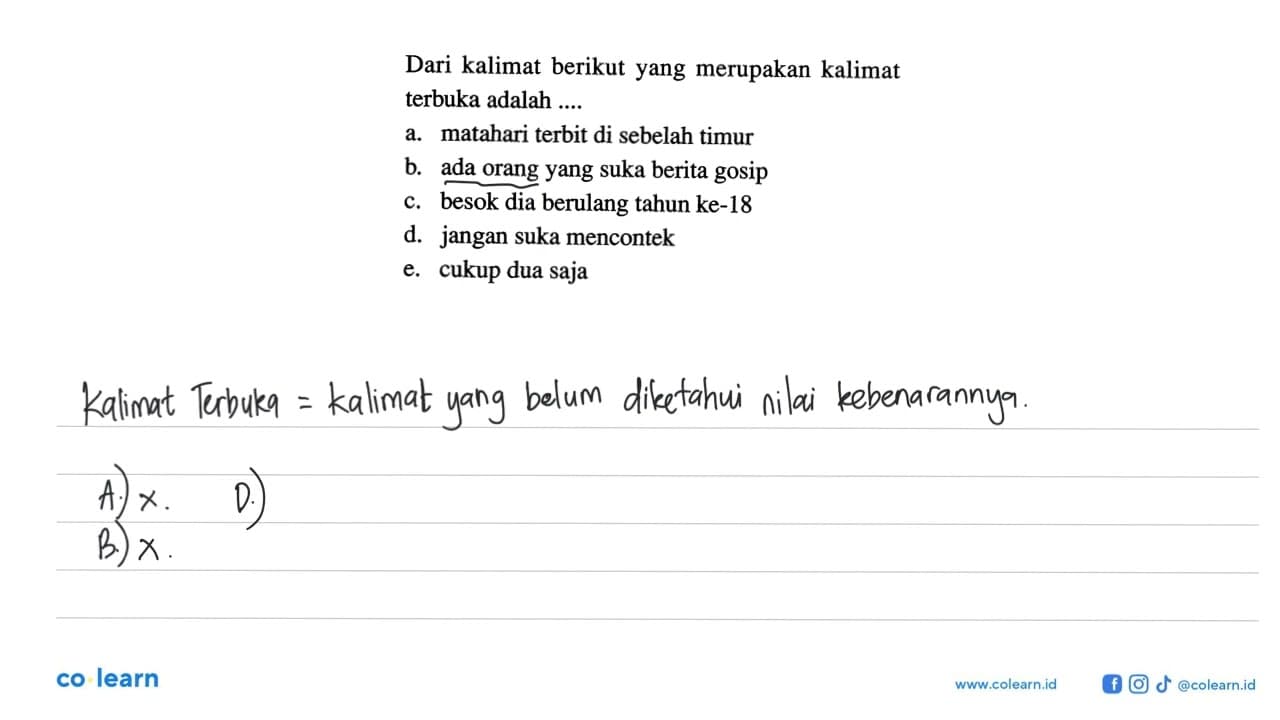 Dari kalimat berikut yang merupakan kalimat
terbuka adalah ....
a. matahari terbit di sebelah timur
b. ada orang yang suka berita gosip
c. besok dia berulang tahun ke-18
d. jangan suka mencontek
e. cukup dua saja
Kalimat Terbuka = kalimat yang belum diketahui nilai kebenarannya.
A.) x. D.)
B.) x.
co learn
www.colearn.id @colearn.id